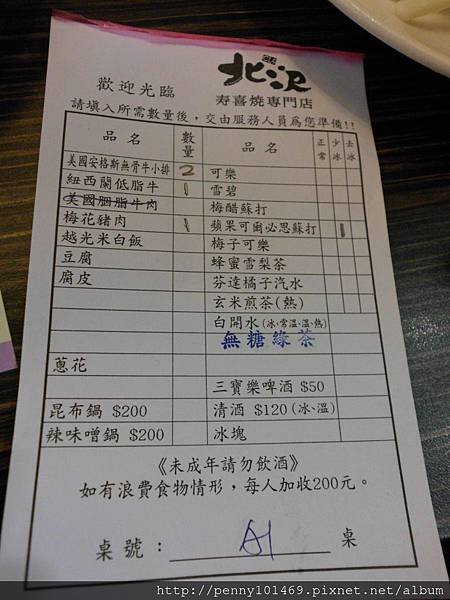 北澤
歡迎光臨
寿喜燒専門店
請填入所需數量後，交由服務人員為您準備!!
品名 數量 品名 正常 少冰 去冰
美國安格斯無骨牛小排 2 可樂
紐西蘭低脂牛 1 雪碧
美國胭脂牛肉 梅醋蘇打
梅花豬肉 1 蘋果可爾必思蘇打 1
越光米白飯 梅子可樂
豆腐 蜂蜜雪梨茶
腐皮 芬達橘子汽水
玄米煎茶(熱)
白開水(冰、常溫、溫、熱)
無糖綠茶
蔥花
三寶樂啤酒 $50
昆布鍋 $200 清酒 $120(冰、溫)
辣味噌鍋 $200 冰塊
《未成年請勿飲酒》
如有浪費食物情形，每人加收200元。
桌號： A1 桌
http://penny101469.pixnet.net/album